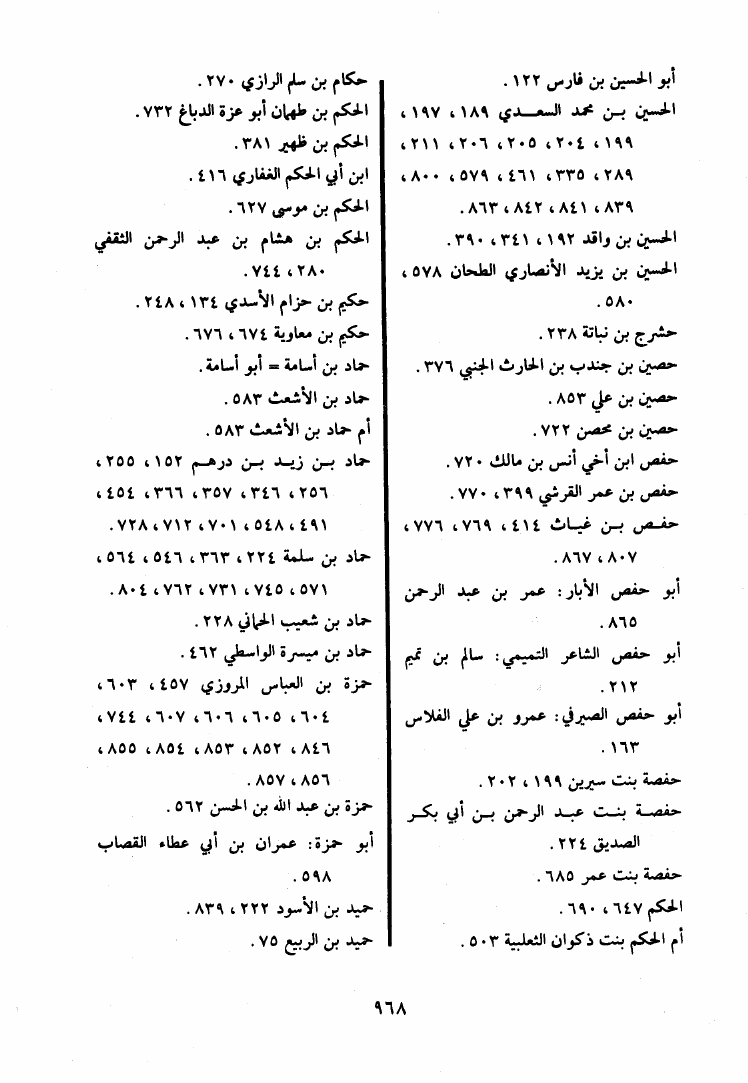 أبو الحسين بن فارس ١٢٢ .
الحسين بـن محمد السعـدي ١٨٩ ، ١٩٧ ،
١٩٩ ، ٢٠٤ ، ٢٠٥ ، ٢٠٦ ، ٢١١ ،
٢٨٩ ، ٣٣٥ ، ٤٦١ ، ٥٧٩ ، ٨٠٠ ،
٨٣٩ ، ٨٤١ ، ٨٤٢ ، ٨٦٣ .
الحسين بن واقد ١٩٢ ، ٣٤١ ، ٣٩٠ .
الحسين بن يزيد الأنصاري الطحان ٥٧٨ ،
٥٨٠ .
حشرج بن نباتة ٢٣٨ .
حصين بن جندب بن الحارث الجنبي ٣٧٦ .
حصين بن علي ٨٥٣ .
حصين بن محصن ٧٢٢ .
حفص ابن أخي أنس بن مالك ٧٢٠ .
حفص بن عمر القرشي ٣٩٩ ، ٧٧٠ .
حفـص بـن غيـاث ٤١٤ ، ٧٦٩ ، ٧٧٦ ،
٨٠٧ ، ٨٦٧ .
أبو حفص الأبار : عمر بن عبد الرحمن
٨٦٥ .
أبو حفص الشاعر التميمي : سالم بن تميم
٢١٢ .
أبو حفص الصيرفي : عمرو بن علي الفلاس
١٦٣ .
حفصة بنت سيرين ١٩٩ ، ٢٠٢ .
حفصـة بنـت عبـد الرحمن بـن أبي بكـر
الصديق ٢٢٤ .
حفصة بنت عمر ٦٨٥ .
الحكم ٦٤٧ ، ٦٩٠ .
أم الحكم بنت ذكوان الثعلبية ٥٠٣ .
حكام بن سلم الرازي ٢٧٠ .
الحكم بن طهمان أبو عزة الدباغ ٧٣٢ .
الحكم بن ظهير ٣٨١ .
ابن أبي الحكم الغفاري ٤١٦ .
الحكم بن موسى ٦٢٧ .
الحكم بن هشام بن عبد الرحمن الثقفي
٢٨٠ ، ٧٤٤ .
حكيم بن حزام الأسدي ١٣٤ ، ٢٤٨ .
حكيم بن معاوية ٦٧٤ ، ٦٧٦ .
حماد بن أسامة = أبو أسامة .
حماد بن الأشعث ٥٨٣ .
أم حماد بن الأشعث ٥٨٣ .
حماد بـن زيـد بـن درهـم ١٥٢ ، ٢٥٥ ،
٢٥٦ ، ٣٤٦ ، ٣٥٧ ، ٣٦٦ ، ٤٥٤ ،
٤٩١ ، ٥٤٨ ، ٧٠١ ، ٧١٢ ، ٧٢٨ .
حماد بن سلمة ٢٢٤ ، ٣٦٣ ، ٥٤٦ ، ٥٦٤ ،
٥٧١ ، ٧٤٥ ، ٧٣١ ، ٧٦٢ ، ٨٠٤ .
حماد بن شعيب الحماني ٢٢٨ .
حماد بن ميسرة الواسطي ٤٦٢ .
حمزة بن العباس المروزي ٤٥٧ ، ٦٠٣ ،
٦٠٤ ، ٦٠٥ ، ٦٠٦ ، ٦٠٧ ، ٧٤٤ ،
٨٤٦ ، ٨٥٢ ، ٨٥٣ ، ٨٥٤ ، ٨٥٥ ،
٨٥٦ ، ٨٥٧ .
حمزة بن عبد الله بن الحسن ٥٦٢ .
أبو حمزة : عمران بن أبي عطاء القصاب
٥٩٨ .
حميد بن الأسود ٢٢٢ ، ٨٣٩ .
حميد بن الربيع ٧٥ .
٩٦٨